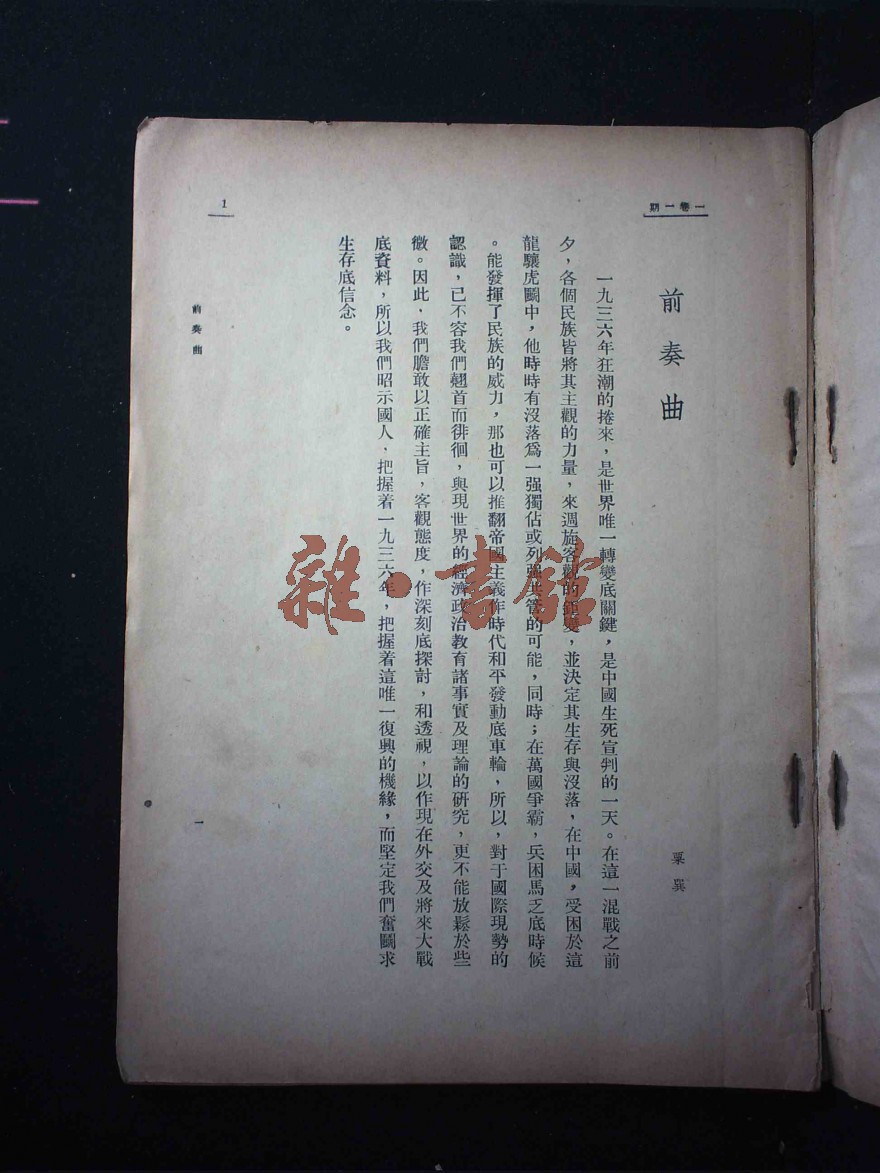 一卷一期
前奏曲
粟巽
一九三六年狂潮的捲來，是世界唯一轉變底關鍵，是中國生死宣判的一天。在這一混戰之前
夕，各個民族皆將其主觀的力量，來週旋客觀的鉅變，並決定其生存與沒落，在中國，受困於這
龍驤虎鬭中，他時時有沒落爲一强獨佔或列强共管的可能，同時；在萬國爭霸，兵困馬乏底時候
。能發揮了民族的威力，那也可以推翻帝國主義作時代和平發動底車輪，所以，對于國際現勢的
認識，已不容我們翹首而徘徊，與現世界的經濟政治教育諸事實及理論的研究，更不能放鬆於些
微。因此，我們膽敢以正確主旨，客觀態度，作深刻底探討，和透視，以作現在外交及將來大戰
底資料，所以我們昭示國人，把握着一九三六年，把握着這唯一復興的機緣，而堅定我們奮鬭求
生存底信念。
1
前奏曲
一
雜·書館